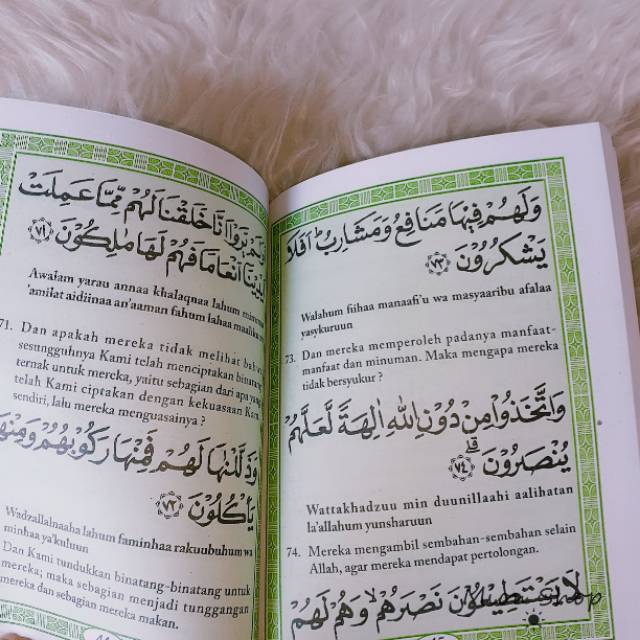 يَرَوْا اَنَّا خَلَقْنَا لَهُمْ مِّمَّا عَمِلَتْ
اَيْدِيْنَآ اَنْعَامًا فَهُمْ لَهَا مٰلِكُوْنَ ﴿٧١﴾
Awalam yarau annaa khalaqnaa lahum
'amilat aidiinaa an'aaman fahum lahaa
71. Dan apakah mereka tidak melihat
sesungguhnya Kami telah menciptakan
ternak untuk mereka, yaitu sebagian dari apa
telah Kami ciptakan dengan kekuasaan
sendiri, lalu mereka menguasainya ?
وَذَلَّلْنٰهَا لَهُمْ فَمِنْهَا رَكُوْبُهُمْ وَمِنْهَا
يَأْكُلُوْنَ ﴿٧٢﴾
Wadzallalnaaha lahum faminhaa rakuubuhum wa
minhaa ya'kuluun
Dan Kami tundukkan binatang-binatang untuk
mereka; maka sebagian menjadi tunggangan
mereka dan sebagian mereka makan.
وَلَهُمْ فِيْهَا مَنَافِعُ وَمَشَارِبُ ۗ اَفَلَا
يَشْكُرُوْنَ ﴿٧٣﴾
Walahum fiihaa manaafi'u wa masyaaribu afalaa
yasykuruun
73. Dan mereka memperoleh padanya manfaat-
manfaat dan minuman. Maka mengapa mereka
tidak bersyukur ?
وَاتَّخَذُوْا مِنْ دُوْنِ اللّٰهِ اٰلِهَةً لَّعَلَّهُمْ
يُنْصَرُوْنَ ۗ ﴿٧٤﴾
Wattakhadzuu min duunillaahi aalihatan
la'allahum yunsharuun
74. Mereka mengambil sembahan-sembahan selain
Allah, agar mereka mendapat pertolongan.
لَا يَسْتَطِيْعُوْنَ نَصْرَهُمْ ۙ وَهُمْ لَهُمْ
Shop